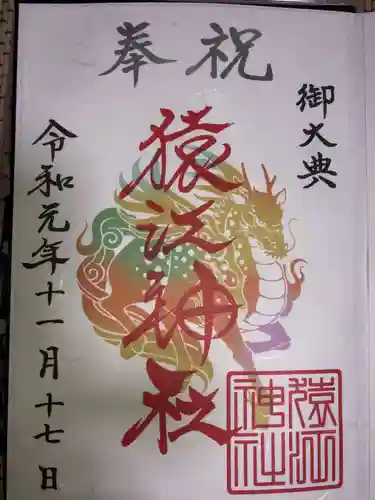 奉祝
御大典
猿江神社
令和元年十一月十七日
猿江神社